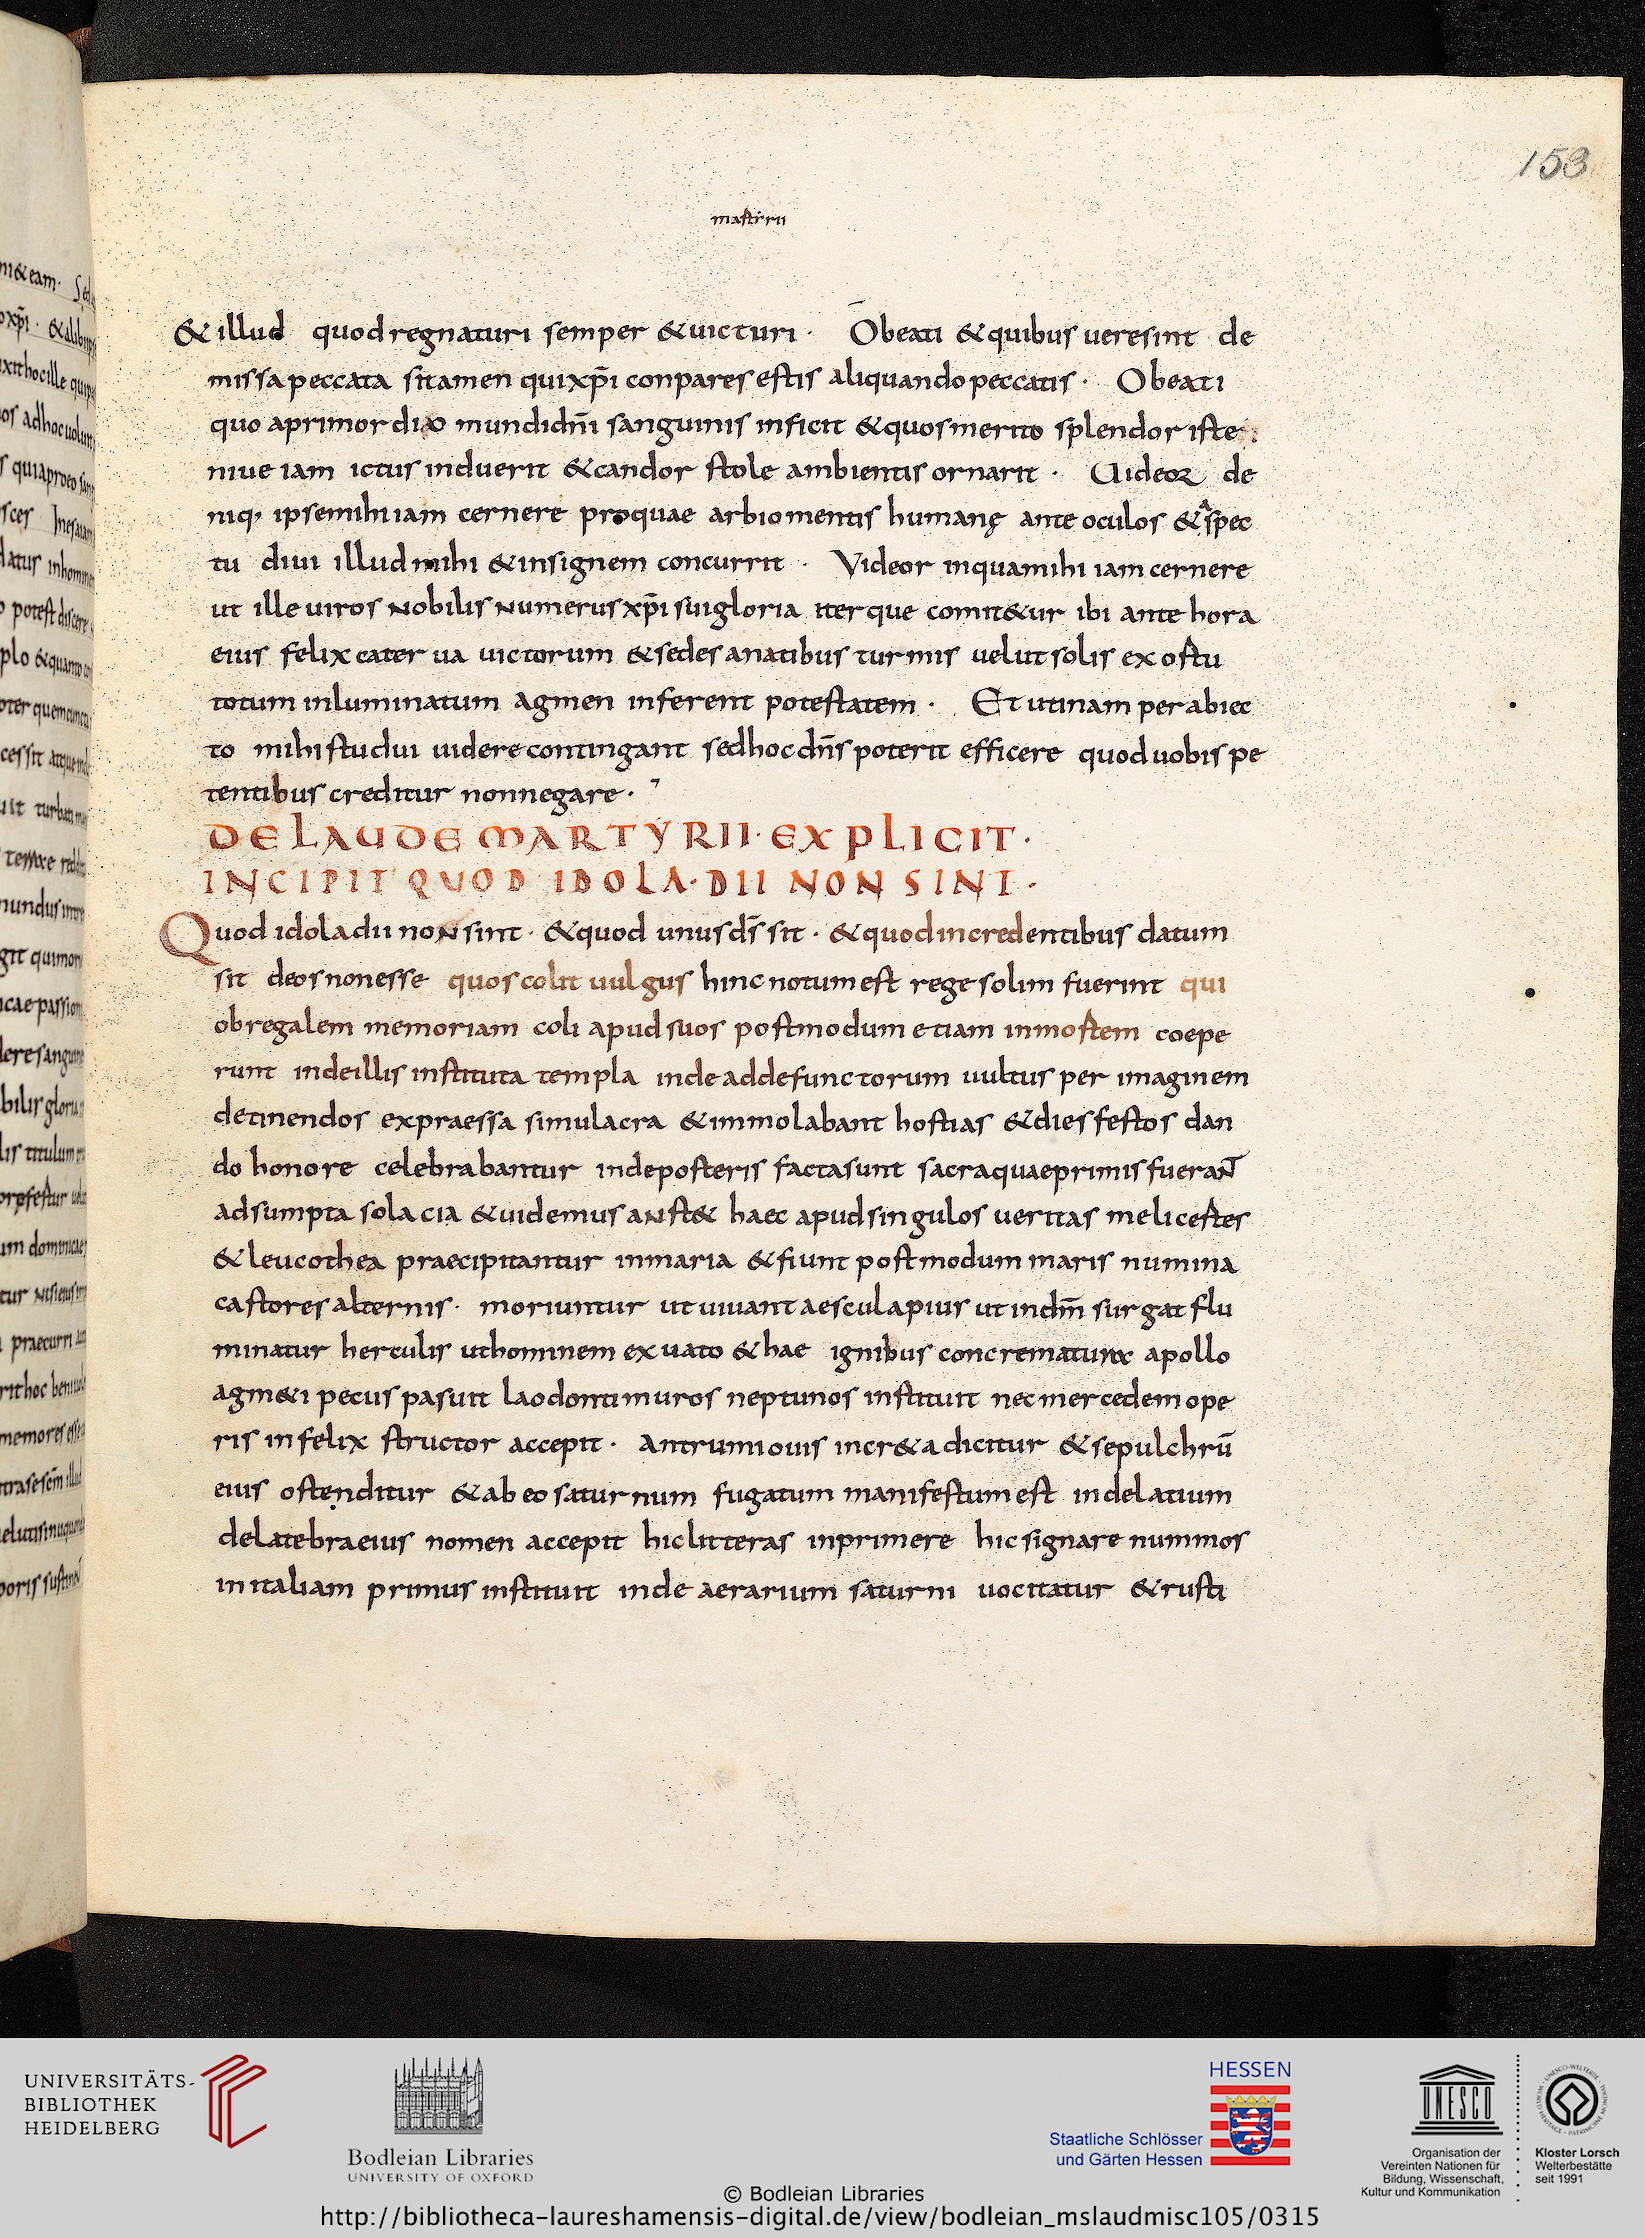 153
martirii
& illud quod regnaturi semper & uicturi · O beati & quibus uere sint de
missa peccata si tamen qui xp̄i conpares estis aliquando peccatis · O beati
quo a primordio mundi dn̄i sanguinis inficit & quos merito splendor iste
niue iam ictus induerit & candor stole ambientis ornarit · Uideor de
niq; ipse mihi iam cernere pro quae arbio mentis humanę ante oculos & aspec
tu diui illud mihi & insignem concurrit · Videor inqua mihi iam cernere
ut ille uiros nobilis numerus xp̄i sui gloria iter que comit&ur ibi ante hora
eius felix caterua uictorum & sedes a natibus turmis uelut solis ex ostu
totum inluminatum agmen inferent potestatem · Et utinam per abiec
to mihi studui uidere contingant sed hoc dn̄s poterit efficere quod uobis pe
tentibus creditur non negare ·
DE LAUDE MARTYRII · EXPLICIT ·
INCIPIT QUOD IDOLA · DII NON SINT ·
Quod idola dii non sint · & quod unus ds̄ sit · & quod in credentibus datum
sit deos non esse quos colit uulgus hinc notum est reges olim fuerint qui
ob regalem memoriam coli apud suos postmodum etiam in mortem coepe
runt inde illis instituta templa inde ad defunctorum uultus per imaginem
detinendos expraessa simulacra & immolabant hostias & dies festos dan
do honore celebrabantur inde posteris facta sunt sacra quae primis fuerant
adsumpta solacia & uidemus an st& haec apud singulos ueritas melicertes
& leucothea praecipitantur in maria & fiunt postmodum maris numina
castores alternis · moriuntur ut uiuant aesculapius ut in dm̄ surgat flu
minatur herculis ut hominem exuato &hae ignibus concrematurae apollo
agm&i pecus pasuit laodonti muros neptunos instituit nec mercedem ope
ris infelix structor accepit · Antrum iouis in cr&a dicitur & sepulchrū
eius ostenditur & ab eo saturnum fugatum manifestum est inde latium
de latebra eius nomen accepit hic litteras inprimere hic signare nummos
in italiam primus instituit inde aerarium saturni uocitatur & rusti
UNIVERSITÄTS-
BIBLIOTHEK
HEIDELBERG
Bodleian Libraries
UNIVERSITY OF OXFORD
HESSEN
Staatliche Schlösser
und Gärten Hessen
UNESCO
Organisation der
Vereinten Nationen für
Bildung, Wissenschaft,
Kultur und Kommunikation
Kloster Lorsch
Welterbestätte
seit 1991
© Bodleian Libraries
http://bibliotheca-laureshamensis-digital.de/view/bodleian_mslaudmisc105/0315